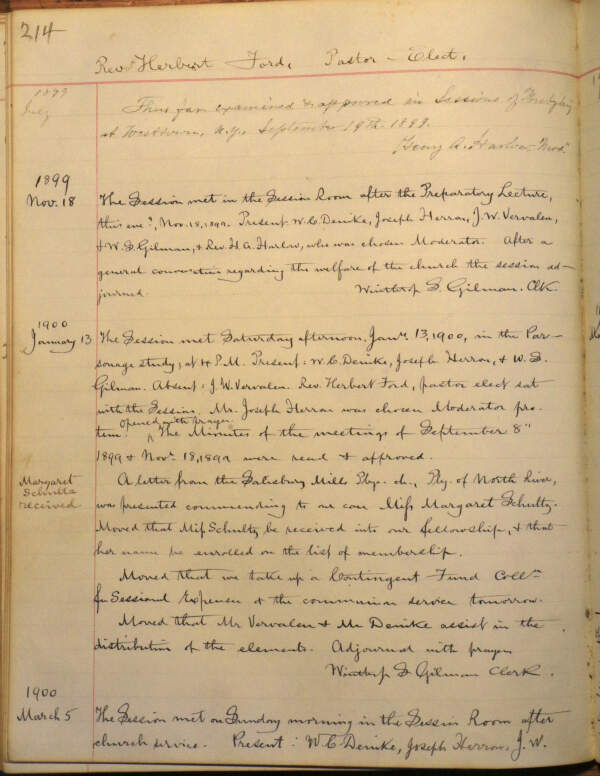 214
Rev. Herbert Ford, Pastor - Elect.
1899
July
Thus far examined & approved in Sessions of Presbytery
at Westtown, N.Y. September 19th. 1899.
Henry A. Harlow Mod.
1899
Nov. 18
The Session met in the Session Room after the Preparatory Lecture,
this eve., Nov. 18, 1899. Present: W. C. Demke, Joseph Herron, J. W. Vervalen,
& W. S. Gilman, & Rev. H. A. Harlow, who was chosen Moderator. After a
general conversation regarding the welfare of the church the session ad-
journed. Winthrop S. Gilman. Clk.
1900
January 13
The Session met Saturday afternoon, Jany. 13, 1900, in the Par-
sonage study, at 4 P.M. Present: W. C. Demke, Joseph Herron, & W. S.
Gilman. Absent: J. W. Vervalen. Rev. Herbert Ford, pastor elect sat
with the Session. Mr. Joseph Herron was chosen Moderator pro.
tem. opened with prayer The Minutes of the meetings of September 8"
1899 & Nov. 18, 1899 were read & approved.
Margaret
Schultz
received
A letter from the Salisbury Mills Pby. ch., Pby. of North River,
was presented commending to our care Miss Margaret Schultz.
Moved that Miss Schultz be received into our fellowship, & that
her name be enrolled on the list of membership.
Moved that we take up a Contingent Fund Colln
for Sessional Expenses at the communion service tomorrow.
Moved that Mr. Vervalen & Mr. Demke assist in the
distribution of the elements. Adjourned with prayer
Winthrop S Gilman Clerk.
1900
March 5
The Session met on Sunday morning in the Session Room after
church service. Present: W. C. Demke, Joseph Herron, J. W.